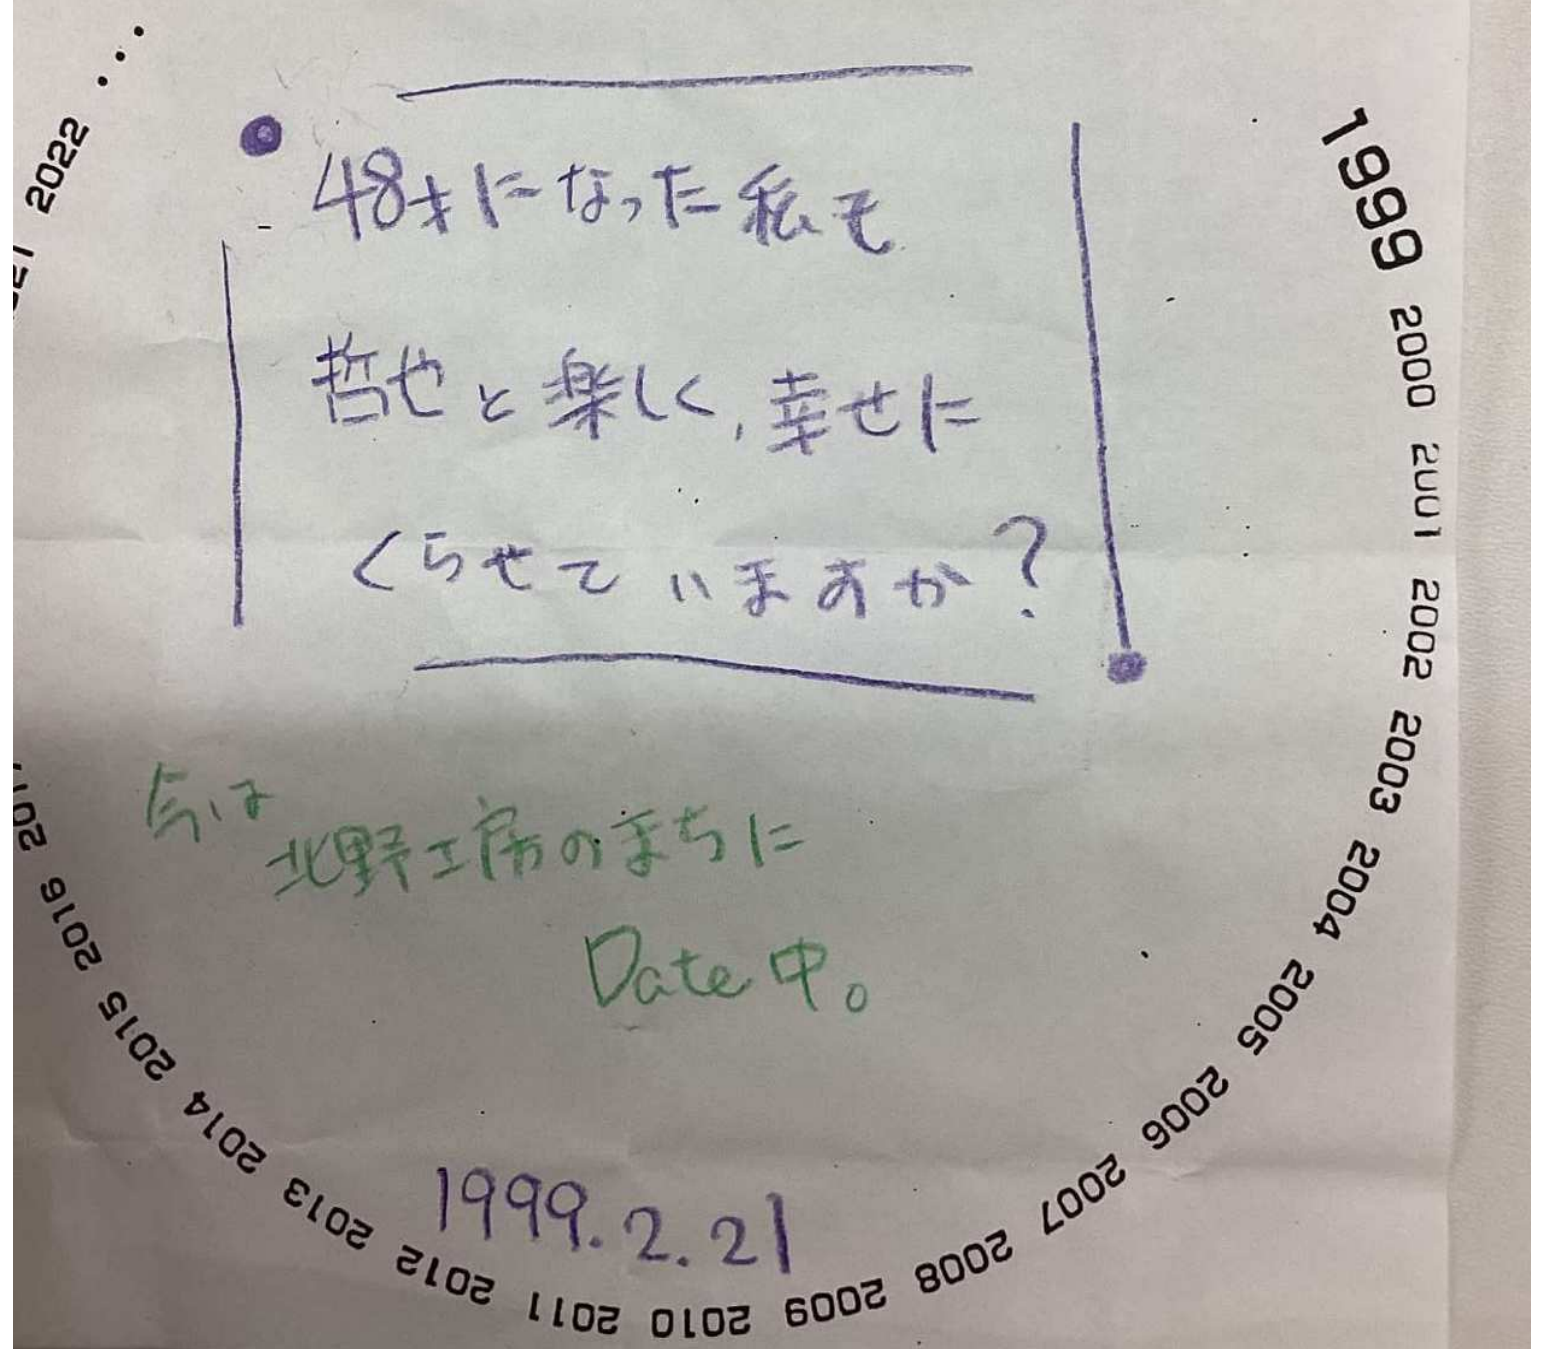 48才になった私も
哲也と楽しく,幸せに
くらせていますか?
今は
北野工房のまちに
Date中。
1999.2.21
1999 2000 2001 2002 2003 2004 2005 2006 2007 2008 2009 2010 2011 2012 2013 2014 2015 2016
2022 ...